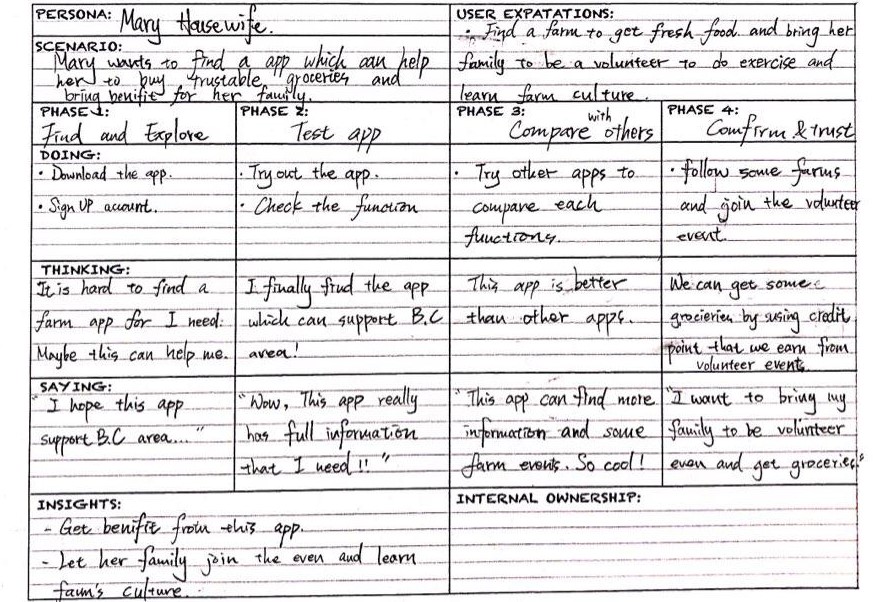 PERSONA: Mary Housewife.
SCENARIO:
Mary wants to find a app which can help
her to buy trustable groceries and
bring benifit for her family.
USER EXPATATIONS:
· Find a farm to get fresh food and bring her
family to be a volunteer to do exercise and
learn farm culture.
PHASE 1:
Find and Explore
PHASE 2:
Test app
PHASE 3:
Compare with others
PHASE 4:
Comfirm & trust
DOING:
· Download the app.
· Sign UP account.
· Try out the app.
· Check the function
· Try other apps to
compare each
functions.
· follow some farms
and join the volunteer
event.
THINKING:
It is hard to find a
farm app for I need.
Maybe this can help me.
I finally find the app
which can support B.C
area!
This app is better
than other apps.
We can get some
grocieries by using credit
point that we earn from
volunteer events.
SAYING:
"I hope this app
support B.C area..."
"Wow, This app really
has full information
that I need!!"
"This app can find more
information and some
farm events. So cool!
"I want to bring my
family to be volunteer
even and get groceries"
INSIGHTS:
- Get benifit from this app.
- Let her family join the even and learn
farm's culture.
INTERNAL OWNERSHIP: